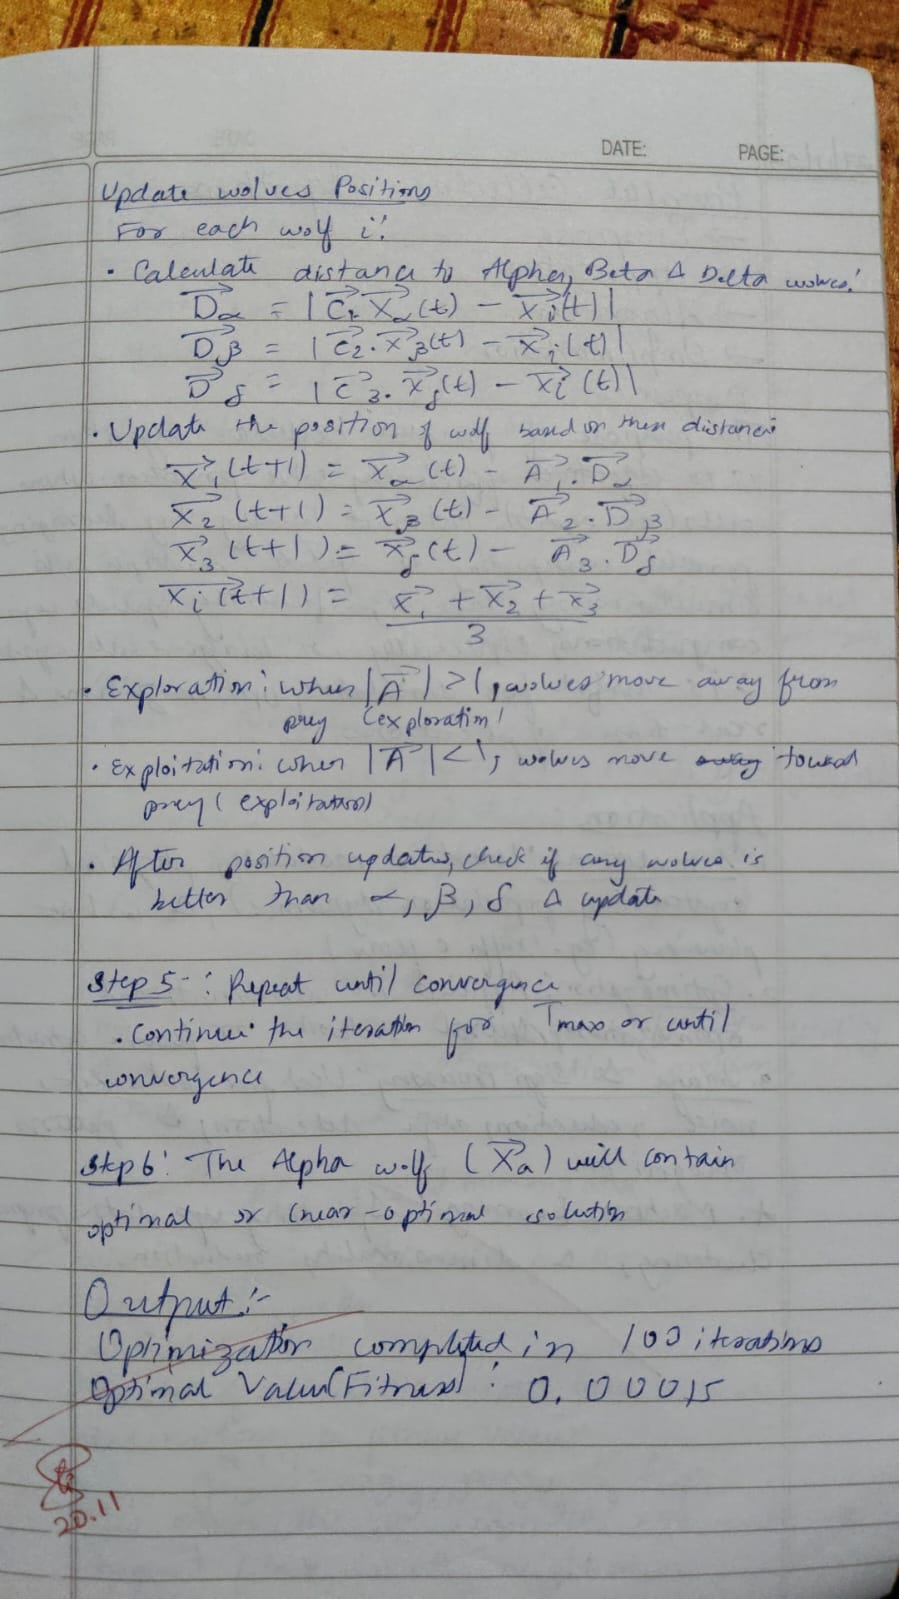 DATE: PAGE:
Update wolves Positions
For each wolf i:
• Calculate distance to Alpha, Beta & Delta wolves:
D⃗α = | C⃗1 X⃗α(t) – X⃗i(t) |
D⃗β = | C⃗2. X⃗β(t) – X⃗i(t) |
D⃗δ = | C⃗3. X⃗δ(t) – X⃗i(t) |
• Update the position of wolf based on these distances
X⃗1(t+1) = X⃗α(t) – A⃗1. D⃗α
X⃗2(t+1) = X⃗β(t) – A⃗2. D⃗β
X⃗3(t+1) = X⃗δ(t) – A⃗3. D⃗δ
X⃗i(t+1) = X⃗1 + X⃗2 + X⃗3
3
• Exploration: when |A⃗| >1, wolves move away from
prey (exploration)
• Exploitation: when |A⃗| <1, wolves move away toward
prey (exploitation)
• After position updates, check if any wolves is
better than α, β, δ & update
Step 5-: Repeat until convergence
• Continue the iteration for Tmax or until
convergence
Step 6: The Alpha wolf (X⃗a) will contain
optimal or (near-optimal solution
Output:-
Optimization completed in 100 iterations
Optimal Value(Fitness): 0.00015
20.11